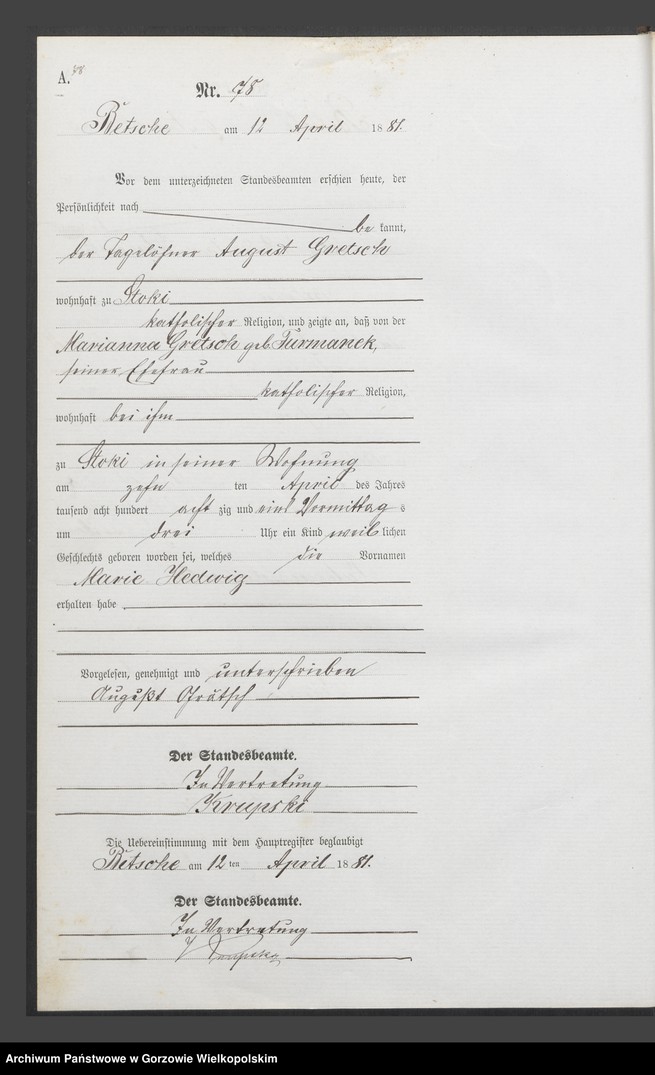 A. 38
Nr. 78
Betsche am 12 April 1881.
Vor dem unterzeichneten Standesbeamten erschien heute, der
Persönlichkeit nach
be kannt,
der Tagelöhner August Gretsch
wohnhaft zu Stoki
katholischer Religion, und zeigte an, daß von der
Marianna Gretsch geb. Furmanek,
seiner Ehefrau
katholischer Religion,
wohnhaft bei ihm
zu Stoki in seiner Wohnung
am zehn ten April des Jahres
tausend acht hundert acht zig und eins Vormittag s
um drei Uhr ein Kind weib lichen
Geschlechts geboren worden sei, welches die Vornamen
Marie Hedwig
erhalten habe
Vorgelesen, genehmigt und unterschrieben
Augußt Grätsch
Der Standesbeamte.
In Vertretung
Krupski
Die Uebereinstimmung mit dem Hauptregister beglaubigt
Betsche am 12 ten April 1881.
Der Standesbeamte.
In Vertretung
Archiwum Państwowe w Gorzowie Wielkopolskim